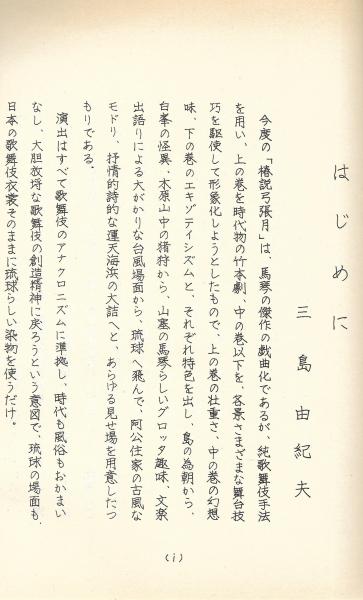 はじめに
三島由紀夫
今度の「椿説弓張月」は、馬琴の傑作の戯曲化であるが、純歌舞伎手法
を用い、上の巻を時代物の竹本劇、中の巻以下を、各景さまざまな舞台技
巧を駆使して形象化しようとしたもので、上の巻の壮重さ、中の巻の幻想
味、下の巻のエキゾティシズムと、それぞれ特色を出し、島の為朝から、
白峯の怪異、木原山中の猪狩から、山塞の馬琴らしいグロッタ趣味、文楽
出語りによる大がかりな台風場面から、琉球へ飛んで、阿公住家の古風な
モドリ、抒情的詩的な運天海浜の大詰へと、あらゆる見せ場を用意したつ
もりである。
演出はすべて歌舞伎のアナクロニズムに準拠し、時代も風俗もおかまい
なし、大胆放埒な歌舞伎の創造精神に戻ろうという意図で、琉球の場面も、
日本の歌舞伎衣裳そのままに琉球らしい染物を使うだけ。
(i)